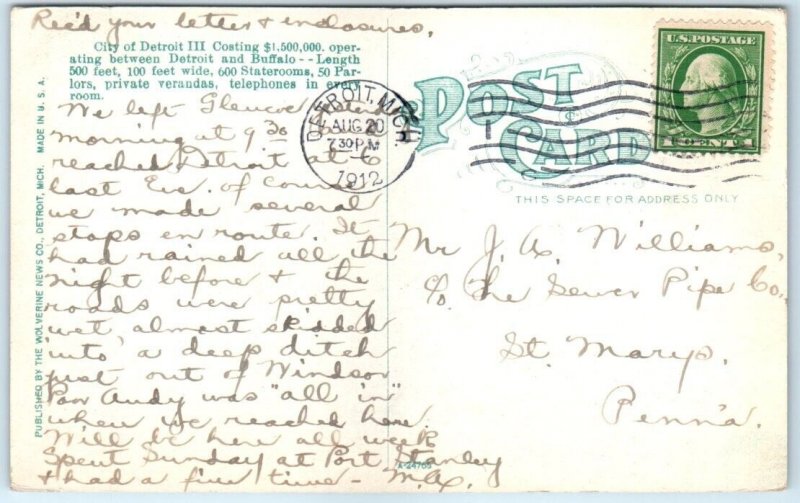 Rec'd your letter & enclosures.
City of Detroit III Costing $1,500,000. oper-
ating between Detroit and Buffalo -- Length
500 feet, 100 feet wide, 600 Staterooms, 50 Par-
lors, private verandas, telephones in every
room.
We left Glencoe
morning at 9 30
reached Detroit at 6
last Eve. of course
we made several
stops en route. It
had rained all the
night before & the
roads were pretty
wet almost skidded
into a deep ditch
just out of Windsor
Poor Andy was "all in"
when we reached here.
Will be here all week
Spent Sunday at Port Stanley
& had a fine time - M.A.
PUBLISHED BY THE WOLVERINE NEWS CO., DETROIT, MICH. MADE IN U.S.A.
DETROIT, MICH.
AUG 20
7 30 P.M
1912
POST
CARD
U.S. POSTAGE
1 CENT 1
THIS SPACE FOR ADDRESS ONLY
Mr J. A. Williams,
c/o The Sewer Pipe Co.,
St. Marys.
Penn'a.
A-24765